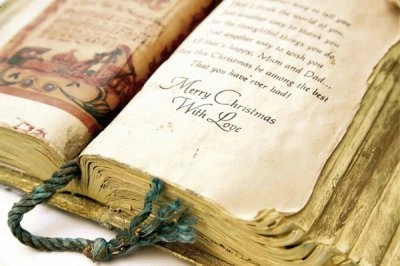 way to tell you
the world to you,
another way to thank you
For the thoughtful things you do,
Just another way to wish you
that is happy, Mum and Dad...
May this Christmas be among the best
That you have ever had!
Merry Christmas
With Love